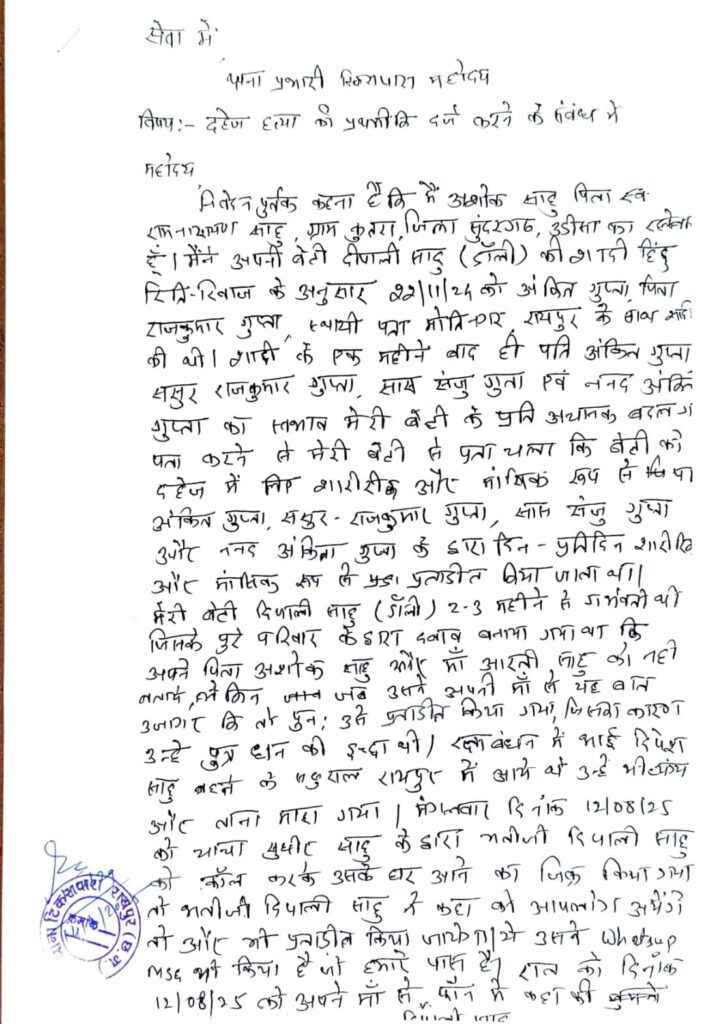 सेवा में
थाना प्रभारी टिकरापारा महोदय
विषय:- दहेज हत्या की प्राथमिकि दर्ज करने के संबंध मे
महोदय
निवेदन पुर्वक कहना है कि मैं अशोक साहु पिता स्व.
रामनारायण साहु, ग्राम कुतरा, जिला सुंदरगढ, उडीसा का रहनेवाला
हुँ। मैंने अपनी बेटी दीपाली साहु (डॉली) की शादी हिंदु
रिति-रिवाज के अनुसार 22/11/24 को अंकित गुप्ता, पिता
राजकुमार गुप्ता, स्थायी पता मोतिनगर, रायपुर के साथ शादी
की थी। शादी के एक महीने बाद ही पति अंकित गुप्ता
ससुर राजकुमार गुप्ता, सास संजु गुप्ता एवं ननद अंकि
गुप्ता का स्वभाव मेरी बेटी के प्रति अचानक बदल ग
पता करने से मेरी बेटी से पता चला कि बेटी को
दहेज में लिए शारीरीक और मांषिक रूप से
अंकित गुप्ता, ससुर-राजकुमार गुप्ता, सास संजु गुप्ता
और ननद अंकिता गुप्ता के द्वारा दिन-प्रतिदिन शारीरि
और मांसिक रूप से प्रताडीत किया जाता था।
मेरी बेटी दिपाली साहु (डॉली) 2-3 महीने से गर्भवती थी
जिसके पुरे परिवार के द्वारा दबाव बनाया गया था कि
अपने पिता अशोक साहु और माँ आरती साहु को नही
बताये, लेकिन जब उसने अपनी माँ से यह बात
उजागर कि तो पुन: उसे प्रताडीत किया गया, जिसका कारण
उन्हे पुत्र धन की इच्छा थी। रक्षाबंधन में भाई दिपेश
साहु बहन के ससुराल रायपुर में आये थे उन्हे भी व्यंग्य
और ताना मारा गया। मंगलवार दिनांक 12/08/25
को चाचा सुधीर साहु के द्वारा भतीजी दिपाली साहु
को कॉल करके उसके घर आने का जिक्र किया गया
तो भतीजी दिपाली साहु ने कहा की आपलोग आयेंगे
तो और भी प्रताडीत किया जायेगा। ये उसने Whatsup
msg भी किया है जो हमारे पास है। रात को दिनाँक
12/08/25 को अपने माँ से फोन में कहा की
दिपाली साहु
थाना टिकरापारा रायपुर (छ.ग.)
क्रमांक